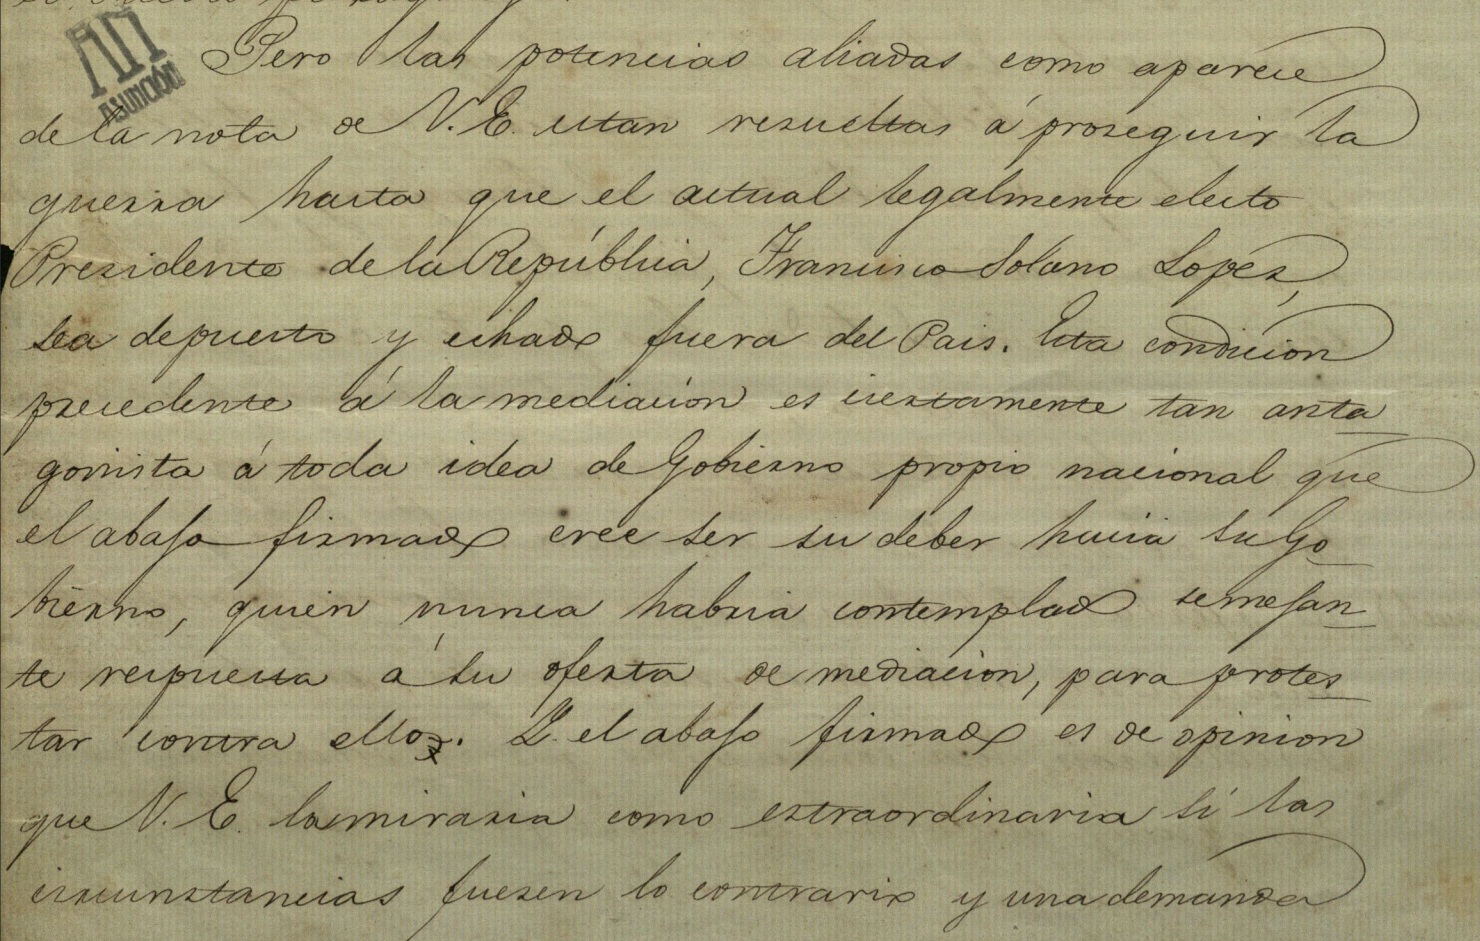 Pero las potencias aliadas como aparece
de la nota de V. E. estan resueltas á proseguir la
guerra hasta que el actual legalmente electo
Presidente de la República, Francisco Solano Lopéz,
sea depuesto y echado fuera del Pais. Esta condicion
precedente á la mediacion es ciertamente tan anta
gonista á toda idea de Gobierno propio nacional que
el abajo firmado cree ser su deber hacia su Go
bierno, quien nunca habria contemplado semejan
te respuesta á su oferta de mediacion, para protes
tar contra ellos. Y el abajo firmado es de opinion
que V. E. la miraria como extraordinaria si las
circunstancias fuesen lo contrario y una demanda
Asunción